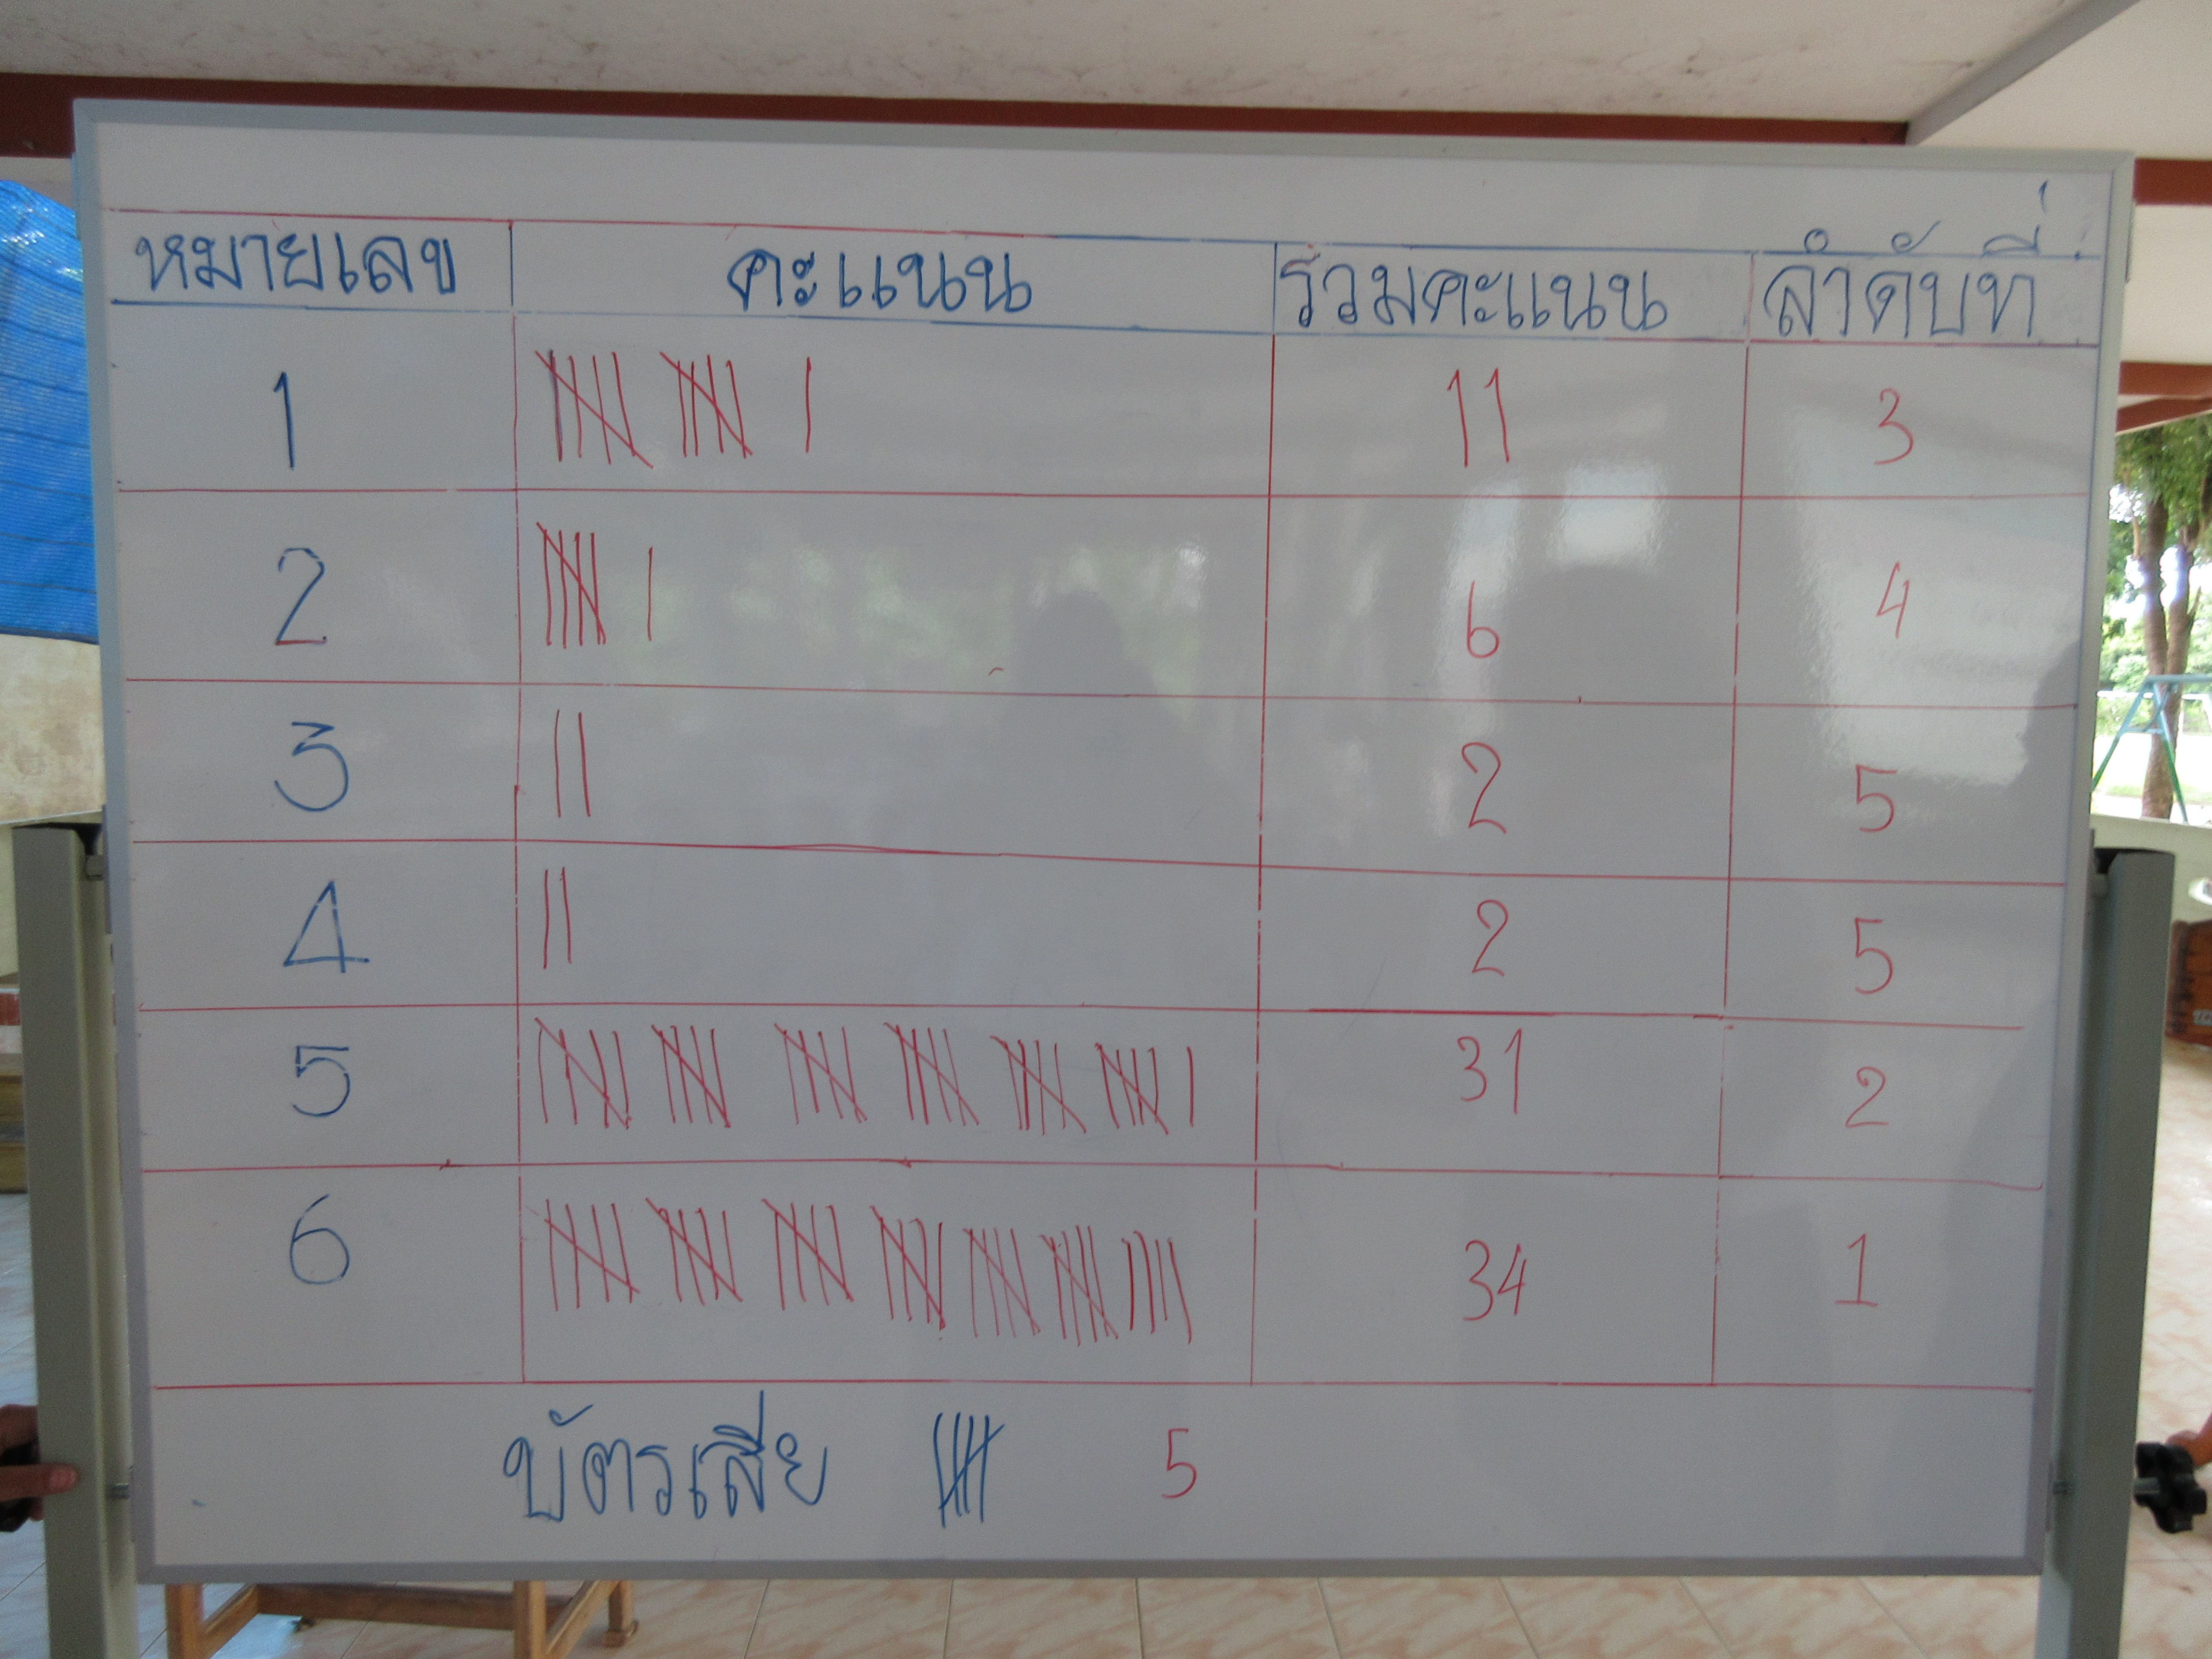 หมายเลข คะแนน รวมคะแนน ลำดับที่
1 11 3
2 6 4
3 2 5
4 2 5
5 31 2
6 34 1
บัตรเสีย 5